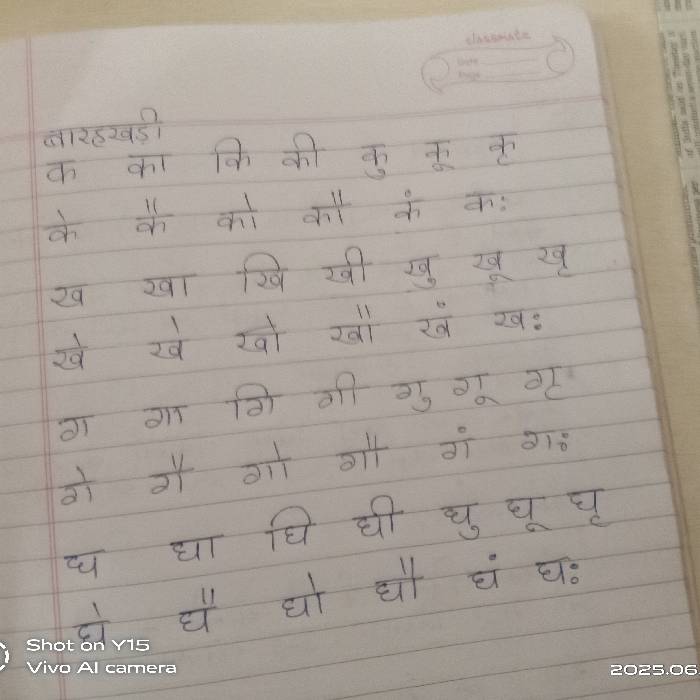 classmate
Date
Page
बारहखड़ी
क का कि की कु कू कृ
के कै को कौ कं कः
ख खा खि खी खु खू खृ
खे खे खो खौ खं खः
ग गा गि गी गु गू गृ
गे गै गो गौ गं गः
घ घा घि घी घु घू घृ
घे घै घो घौ घं घः
Shot on Y15
Vivo AI camera
2025.06